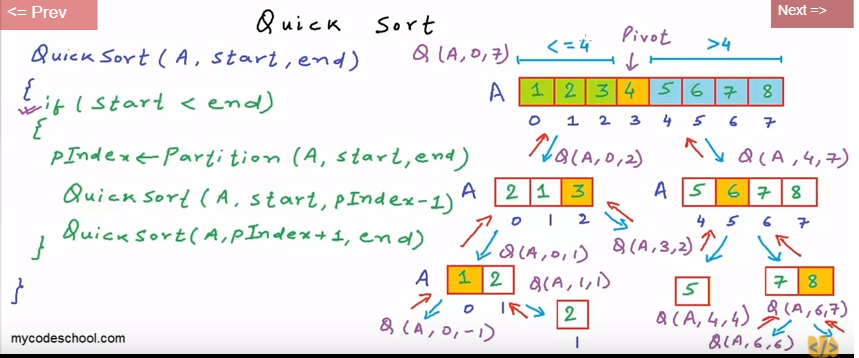 <= Prev
Quick Sort
Next =>
QuickSort (A, start, end)
{
if (start < end)
{
pIndex ← Partition (A, start, end)
QuickSort (A, start, pIndex-1)
QuickSort(A, pIndex+1, end)
}
}
mycodeschool.com
Q (A, 0, 7)
<= 4
Pivot
>4
A 1 2 3 4 5 6 7 8
0 1 2 3 4 5 6 7
Q(A, 0, 2)
Q(A, 4, 7)
A 2 1 3
0 1 2
A 5 6 7 8
4 5 6 7
Q(A, 0, 1)
Q(A, 3, 2)
A 1 2
0 1
Q(A, 1, 1)
5
7 8
Q (A, 0, -1)
2
1
Q(A, 4, 4)
Q(A, 6, 7)
Q(A, 6, 6)
</>